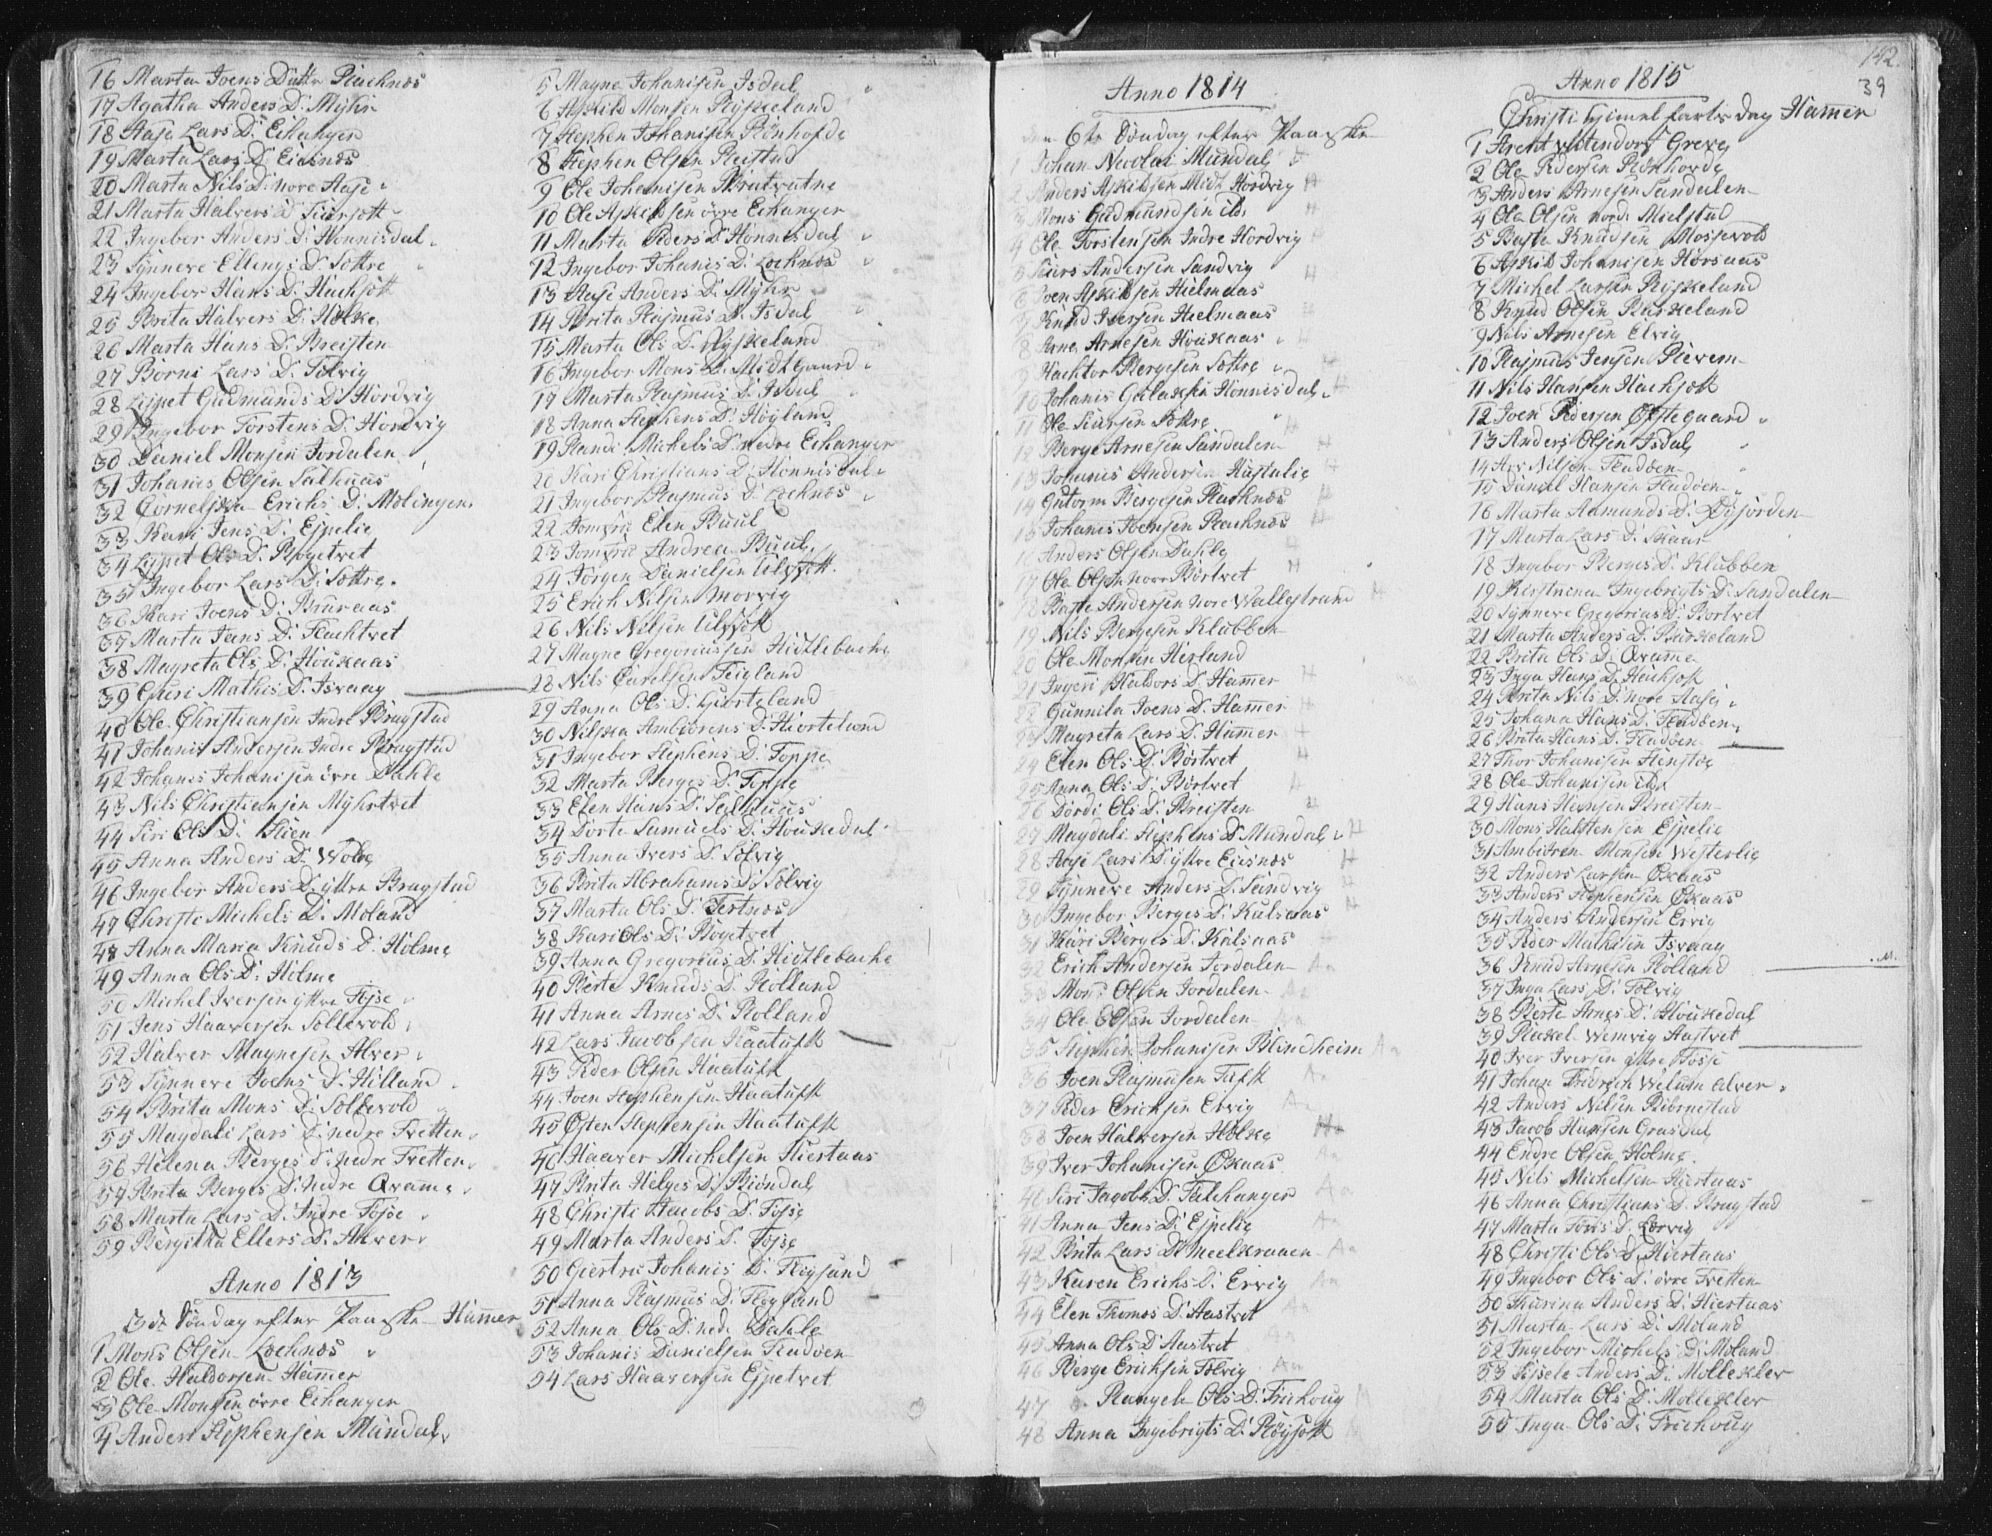 16 Marta Joens Dattr Rachnæs
17 Agatha Anders D: Myhr
18 Aase Lars D: Eihanger
19 Marta Lars D: Eicnæs
20 Marta Nils D: nore Aase
21 Marta Halvers D:
22 Ingebor Anders D: Honnisdal
23 Synneve Ellings D: Sættre
24 Ingebor Hans D: Hachjott
25 Brita Halvers D: Holke
26 Marta Hans D: Breisten
27 Borni Lars D: Tolvig
28 Lispet Gudmunds D: Hordvig
29 Ingebor Torstens D: Hordvig
30 Daniel Monsen Jordalen
31 Johanes Olsen Salhuus
32 Erichs D: Molingen
33 Kari Jens D: Espelie
34 Lispet Ols D: Røgetvet
35 Ingebor Lars D: Sættre
36 Kari Joens D: Bruraas
37 Marta Jens D: Flachtvet
38 Magreta Ols D: Houkaas
39 Guri Mathis D: Isvaag
40 Ole Christiansen Indre Bragstad
41 Johanis Andersen Indre Bragstad
42 Johanis Johanisen øvre Dahle
43 Nils Christiansen Myhrtvet
44 Siri Ols D:
45 Anna Anders D:
46 Ingebor Anders D: yttre Bragstad
47 Christi Michels D: Moland
48 Anna Maria Knuds D: Holme
49 Anna Ols D: Holme
50 Michel Iversen yttre Fosse
51 Jens Haaversen Sollevold
52 Halver Magnesen Alver
53 Synneve Joens D: Hilland
54 Brita Mons D: Sollevold
55 Magdali Lars D: nedre Fretten
56 Helena Berges D: nedre Fretten
57 Brita Berges D: nedre Qvamme
58 Marta Lars D: Indre Fosse
59 Bergitha Ellers D: Alver
Anno 1813
3de Søndag efter Paaske Hammer
1 Mons Olsen Lochnæs
2 Ole Haldorsen Hammer
3 Ole Monsen øvre Eihanger
4 Anders Stephensen Mundal
5 Magne Johanisen Isdal
6 Askild Monsen Ryskeland
7 Stephen Johanisen Rønhofde
8 Stephen Olsen Reistad
9 Ole Johanisen Bratvatne
10 Ole Askildsen øvre Eihanger
11 Marta Peders D: Honnisdal
12 Ingebor Johanis D: Lochnæs
13 Aase Anders D: Myhr
14 Brita Rasmus D: Isdal
15 Marta Ols D: Ryskeland
16 Ingebor Mons D: Midtgaard
17 Marta Rasmus D: Isdal
18 Anna Stephens D: Høgland
19 Randi Michels D: nedre Eihanger
20 Kari Christians D: Honnisdal
21 Ingebor Rasmus D: Lochnæs
22 Jomfru Elen Buul
23 Jomfru Andrea Buul
24 Jørgen Danielsen
25 Erich Nilsen Morvig
26 Nils Nilsen
27 Magne Gregoriussen Hidtlebache
28 Nils Carelsen Teigland
29 Anna Ols D: Hiorteland
30 Ambiørens D: Hiorteland
31 Ingebor Stephens D: Toppe
32 Marta Berges D: Toppe
33 Elen Hans D: Salhuus
34 Dorte Samuels D: Houkedal
35 Anna Ivers D: Solvig
36 Brita Abrahams D: Solvig
37 Marta Ols D: Tertnæs
38 Kari Ols D: Røgetvet
39 Anna Gregorius D: Hidtlebache
40 Berte Knuds D: Rolland
41 Anna Arnes D: Rolland
42 Lars Jacobsen Haatuft
43 Peder Olsen Haatuft
44 Joen Stephensen Haatuft
45 Østen Stephensen Haatuft
46 Haaver Michelsen Hiertaas
47 Brita Helges D: Biøndal
48 Christi Jacobs D: Fosse
49 Marta Anders D: Fosse
50 Giertru Johanis D: Flogsund
51 Anna Rasmus D: Flogsund
52 Anna Ols D: ned: Dahle
53 Johanis Danielsen Fladøen
54 Lars Haaversen Espetvet
Anno 1814
6te Søndag efter Paaske
1 Johan Nicolai Mundal H
2 Anders Askildsen Midt Hordvig H
3 Mons Gudmundsen ibd: H
4 Ole Torstensen Indre Hordvig H
5 Siurs Andersen Sandvig H
6 Joen Askildsen Hielmaas H
7 Knud Iversen Hielmaas H
8 Arne Arnesen Houkaas H
9 Hachtor Bergesen Sættre H
10 Johanis Gulachsen Honnisdal H
11 Ole Siursen Sættre H
12 Berge Arnesen Sandalen H
13 Johannes Andersen Hustulie H
14 Gutorm Bergesen Rachnæs H
15 Johanis Joensen Rachnæs H
16 Anders Olsen Dahle H
17 Ole Olsen nore Børtvet H
18 Baste Andersen nore Wallestrand H
19 Nils Bergesen Klubben
20 Ole Monsen Herland
21 Ingeri Haldors D: Hammer H
22 Gunnila Joens D: Hammer H
23 Magreta Lars D: Hammer H
24 Elen Ols D: Børtvet H
25 Anna Ols D: Børtvet H
26 Dordi Ols D: Breisten H
27 Magdali Stephens D: Mundal H
28 Aase Lars D: yttre Eicnæs H
29 Synneve Anders D: Sandvig H
30 Ingebor Berges D: Kulsaas H
31 Kari Berges D: Kulsaas
32 Erich Andersen Jordalen Aa
33 Mons Olsen Jordalen Aa
34 Ole Olsen Jordalen Aa
35 Stephen Johanisen Blindheim Aa
36 Joen Rasmusen Tuft Aa
37 Peder Erichsen Ervig Aa
38 Joen Halversen Holke
39 Iver Johanisen Øxaas Aa
40 Siri Jacobs D: Salehanger Aa
41 Anna Jens D: Espelie Aa
42 Brita Lars D: Meelkraaen Aa
43 Karen Erichs D: Ervig Aa
44 Elen Thomas D: Aastvet Aa
45 Anna Ols D: Aastvet Aa
46 Berge Erichsen Tolvig Aa
47 Rangele Ols D: Friehoug
48 Anna Ingebrigts D: Røysott
142.
39
Anno 1815
Christi himmelfarts dag Hammer
1 Arent Greve
2 Ole Pedersen Rødshorde
3 Anders Arnesen Sandalen
4 Ole Olsen nord: Mielstad
5 Baste Knudsen Mossevold
6 Askild Johanisen Horsaas
7 Michel Larsen Ryskeland
8 Knud Olsen Raskeland
9 Nils Arnesen Elvig
10 Rasmus Jensen Rievem
11 Nils Hansen Hachjott
12 Joen Pedersen Østegaard
13 Anders Olsen Isdal
14 Nilsen Fladøen
15 Daniel Hansen Fladøen
16 Marta Aamunds D: Dysjorden
17 Marta Lars D: Skaar
18 Ingebor Berges D: Klubben
19 Kierstnena Ingebrigts D: Sandalen
20 Synneve Gregorius D: Bortvet
21 Marta Anders D: Raskeland
22 Brita Ols D: Qvamme
23 Inga Hans D: Hachjott
24 Brita Nils D: nore Aase
25 Johana Hans D: Fladøen
26 Brita Hans D: Fladøen
27 Thor Johanisen Henstøe
28 Ole Johanisen ibd:
29 Hans Hansen Breisten
30 Mons Halstensen Espelie
31 Ambiøren Monsen Westerlie
32 Anders Larsen Øxaas
33 Anders Stephensen Øxaas
34 Anders Andersen Ervig
35 Peder Mathisen Isvaag
36 Knud Arnesen Rolland
37 Inga Lars D: Tolvig
38 Berte Arnes D: Houkedal
39 Rackel Wemvig Aastvet
40 Iver Iversen yttre Fosse
41 Johan Fridrech Welum Alver
42 Anders Nilsen Bibrnestad
43 Jacob Hansen Grasdal
44 Endre Olsen Holme
45 Nils Michelsen Hiertaas
46 Anna Christians D: Bragstad
47 Marta D: Lervig
48 Christi Ols D: Hiertaas
49 Ingebor Ols D: øvre Fretten
50 Katarina Anders D: Hiertaas
51 Marta Lars D: Moland
52 Ingebor Michels D: Moland
53 Anders D: Mollekler
54 Marta Ols D: Mollekler
55 Inga Ols D: Friehoug